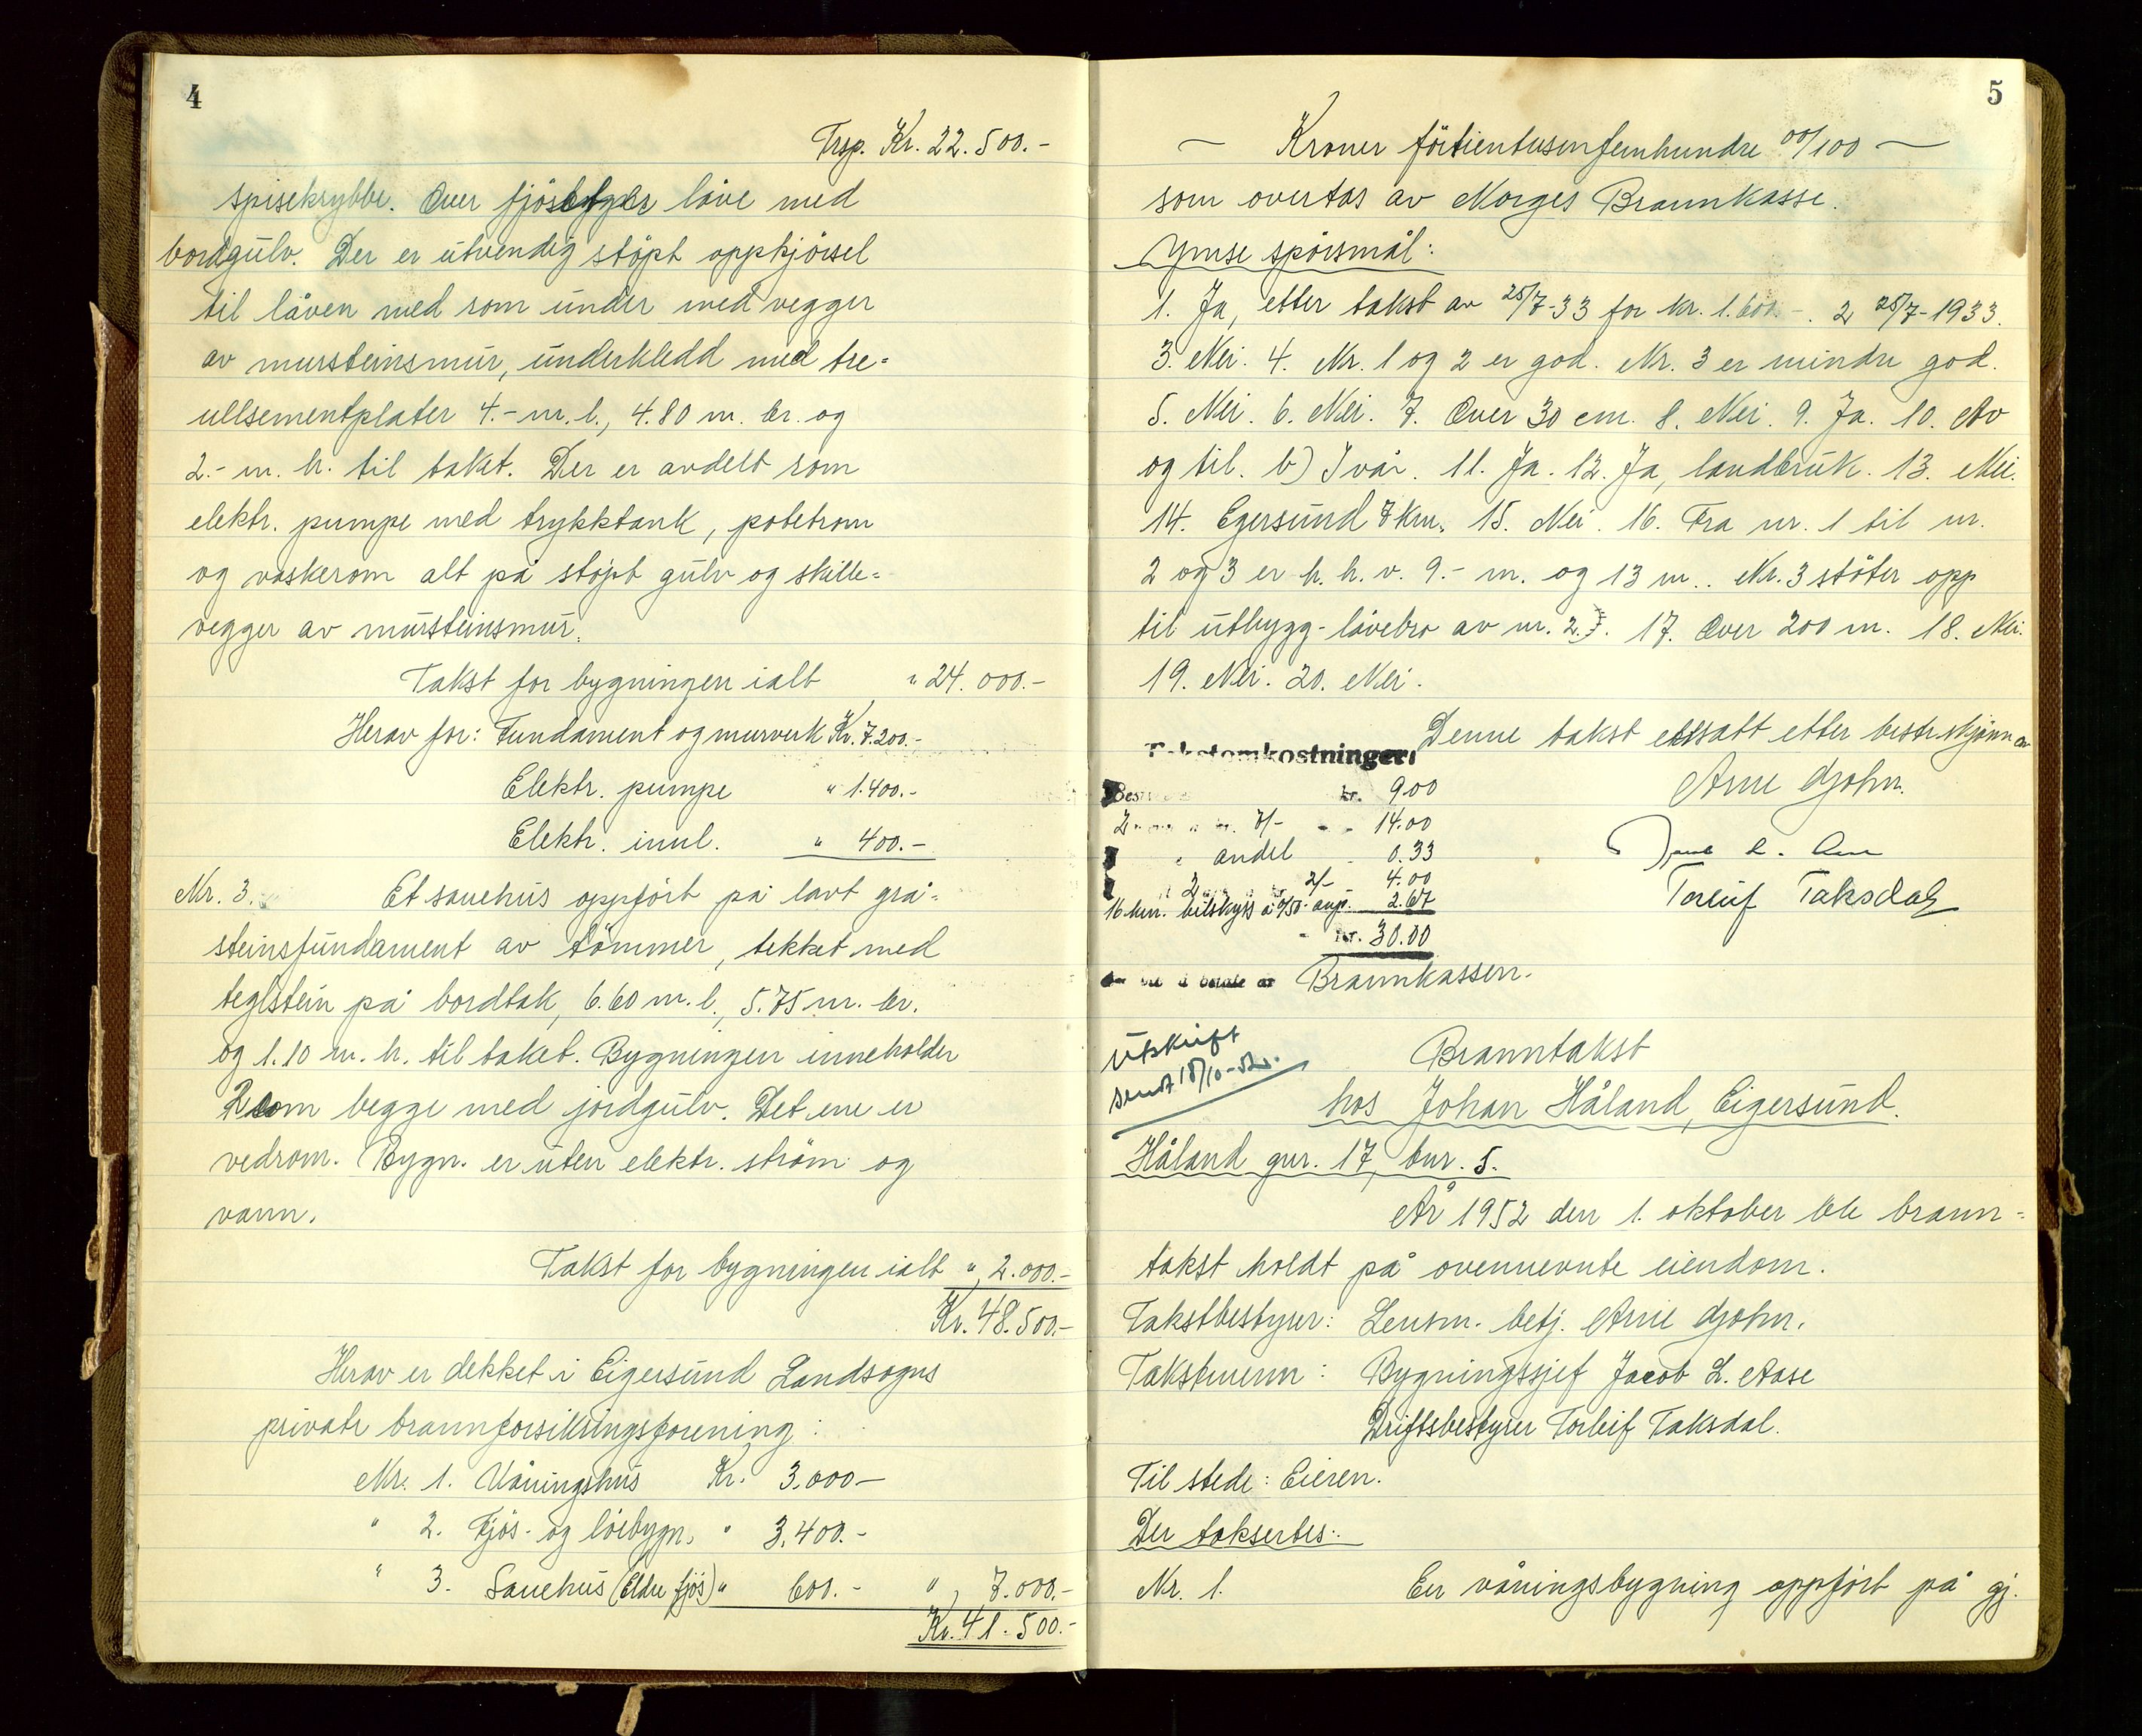 4
Trsp. Kr. 22.500.-
spisekrybbe. Over fjöset er låve med
bordgulv. Der er utvendig stöpt oppkjörsel
til låven med rom under med vegger
av mursteinsmur, underkledd med tre-
ullsementplater 4.- m. l., 4.80 m. br. og
2.- m. h. til taket. Der er avdelt rom
elektr. pumpe med trykktank, potetrom
og vaskerom alt på stöpt gulv og skille-
vegger av mursteinsmur.
Takst for bygningen ialt " 24.000.-
Herav for: Fundament og murverk Kr. 7.200.-
Elektr. pumpe " 1.400.-
Elektr. innl. " 400.-
Nr. 3. Et sauehus oppfört på lavt grå-
steinsfundament av tömmer, tekket med
teglstein på bordtak, 6.60 m. l., 5.75 m. br.
og 1.10 m. h. til taket. Bygningen inneholder
2 rom begge med jordgulv. Det ene er
vedrom. Bygn. er uten elektr. ström og
vann.
Takst for bygningen ialt " 2.000.-
Kr. 48.500.-
Herav er dekket i Eigersund Landsogns
private brannforsikringsforening:
Nr. 1. Våningshus Kr. 3.000.-
" 2. Fjös- og löebygn. " 3.400.-
" 3. Sauehus (Eldre fjös) " 600.- " 7.000.-
Kr. 41.500.-
5
— Kroner förtientusenfemhundre 00/100 —
som overtas av Norges Brannkasse.
Ymse spörsmål:
1. Ja, etter takst av 25/7-33 for kr. 1.600.-. 2 25/7-1933.
3. Nei. 4. Nr. 1 og 2 er god. Nr. 3 er mindre god.
5. Nei. 6. Nei. 7. Over 30 cm. 8. Nei. 9. Ja. 10. Av
og til. b) I vår. 11. Ja. 12. Ja, landbruk. 13. Nei.
14. Egersund 7 km. 15. Nei. 16. Fra nr. 1 til nr.
2 og 3 er h. h. v. 9.- m. og 13 m.. Nr. 3 stöter opp
til utbygg-låvebro av nr. 2. 17. Over 200 m. 18. Nei.
19. Nei. 20. Nei.
Denne takst er satt etter beste skjönn av
Takstomkostninger:
Arne Gjohn.
Best kr. 9.00
2 7/- 14.00
" andel 0.33
2 2/- 4.00
Torleif Taksdal
16 km. bilskyss á 0/50 2.67
kr. 30.00
Brannkassen.
Utskrift
sendt 18/10-52.
Branntakst
hos Johan Håland, Eigersund.
Håland gnr. 17, bnr. 5.
År 1952 den 1. oktober ble brann-
takst holdt på ovennevnte eiendom.
Takstbestyrer: Lensm. betj. Arne Gjohn.
Takstmenn: Bygningssjef Jacob L. Aase
Driftsbestyrer Torleif Taksdal.
Til stede: Eieren.
Der taksertes:
Nr. 1. En våningsbygning oppfört på gj.